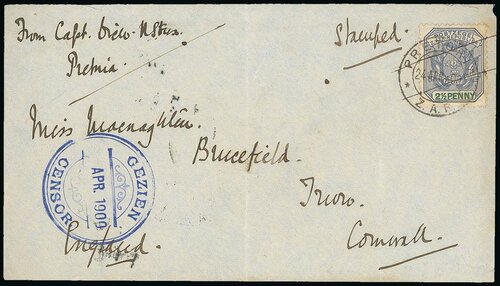 From Capt.
Pretoria
Stamped.
PRETORIA
Z.A.R.
2½ PENNY
Miss Macnaghten.
Brucefield.
Truro.
Cornwall.
England.
GEZIEN
APR. 1900
CENSOR